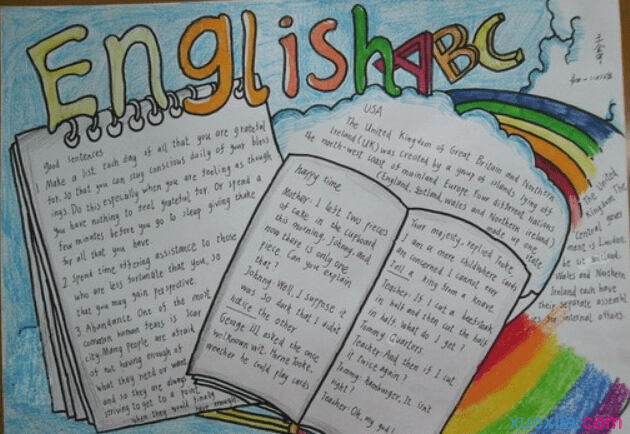 English ABC
good sentences
1 Make a list each day of all that you are grateful
for. So that you can stay conscious daily of your bless
ings. Do this especially when you are feeling as though
you have nothing to feel grateful for. Or spend a
few minutes before you go to sleep giving thanks
for all that you have.
2 Spend time offering assistance to those
who are less fortunate that you, so
that you may gain perspective.
3 Abundance One of the most
common human fears is scar
city. Many people are afraid
of not having enough of
what they need or want
and so they are always
striving to get to a point
when they would finally
have enough
happy time
Mother: I left two pieces
of cake in the cupboard
this morning, Johnny, and
now there is only one
piece. Can you explain
that?
Johnny: Well, I suppose it
was so dark that I didn't
notice the other
George III asked the once
well known wit. Horne Tooke,
weather he could play cards
Your majesty, replied Tooke,
I am a mere child where cards
are concerned I cannot even
tell a king from a knave
Teacher: If I cut a beefsteak
in half and then cut the half
in half. What do I get?
Tommy: Quarters.
Teacher: And then if I cut
it twice again?
Tommy: Hamburger, It isn't
right?
Teacher: Oh, my god!
USA
The United Kingdom of Great Britain and Northern
Ireland (UK) was created by a group of islands lying off
the north-west coast of mainland Europe. Four different nations
(England, Scotland, wales and Northern ireland)
made up one
state
The United
Kingdom The
Central gover
ment is London,
Wales and Northern
Ireland each have
their separate assembl
internal affairs.
xuexila.com